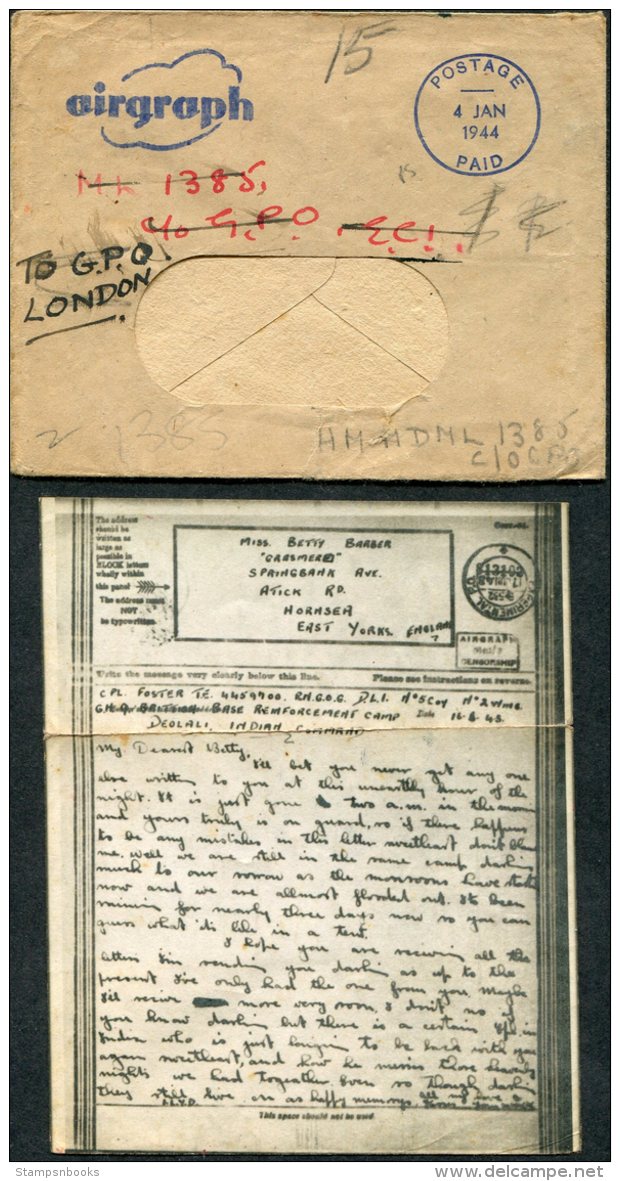 15
airgraph
POSTAGE
4 JAN
1944
PAID
15
ML 1385,
c/o G.P.O. E.C.1.
TO G.P.O
LONDON.
1385
HM HDML 1385
C/O GPO
The address
should be
written as
large as
possible in
BLOCK letters
wholly within
this panel
The address must
NOT
be typewritten.
MISS. BETTY BARBER
"GRASMERE"
SPRINGBANK AVE.
ATICK RD.
HORNSEA
EAST YORKS, ENGLAND
AIRGRAPH
CENSORSHIP
Write the message very clearly below this line.
Please see instructions on reverse.
CPL. FOSTER T.E. 4459400. D.L.I. No 5 COY No 2 WING
G.H.Q. BRITISH BASE REINFORCEMENT CAMP Date 16.6.43.
DEOLALI, INDIAN COMMAND
2
My Dearest Betty,
I'll bet you never get any one
else written to you at this unearthly hour of the
night. It is just gone two a.m. in the morn
and yours truly is on guard, so if there happens
to be any mistakes in this letter sweetheart don't blame
me. Well we are still in the same camp darling
much to our sorrow as the monsoons have
now and we are allmost flooded out. Its been
raining for nearly three days now so you can
guess what 'tis like in a tent.
I hope you are receiving all the
letters I'm sending you darling as up to the
present I've only had the one from you. Maybe
I'll receive more very soon, I don't no if
you know darling but there is a certain in
India who is just longing to be back with you
again sweetheart, and how he misses those heavenly
nights we had together. Even so though darling
they still live on as happy memorys, all my love
This space should not be used.
Stampsnbooks
www.delcampe.net